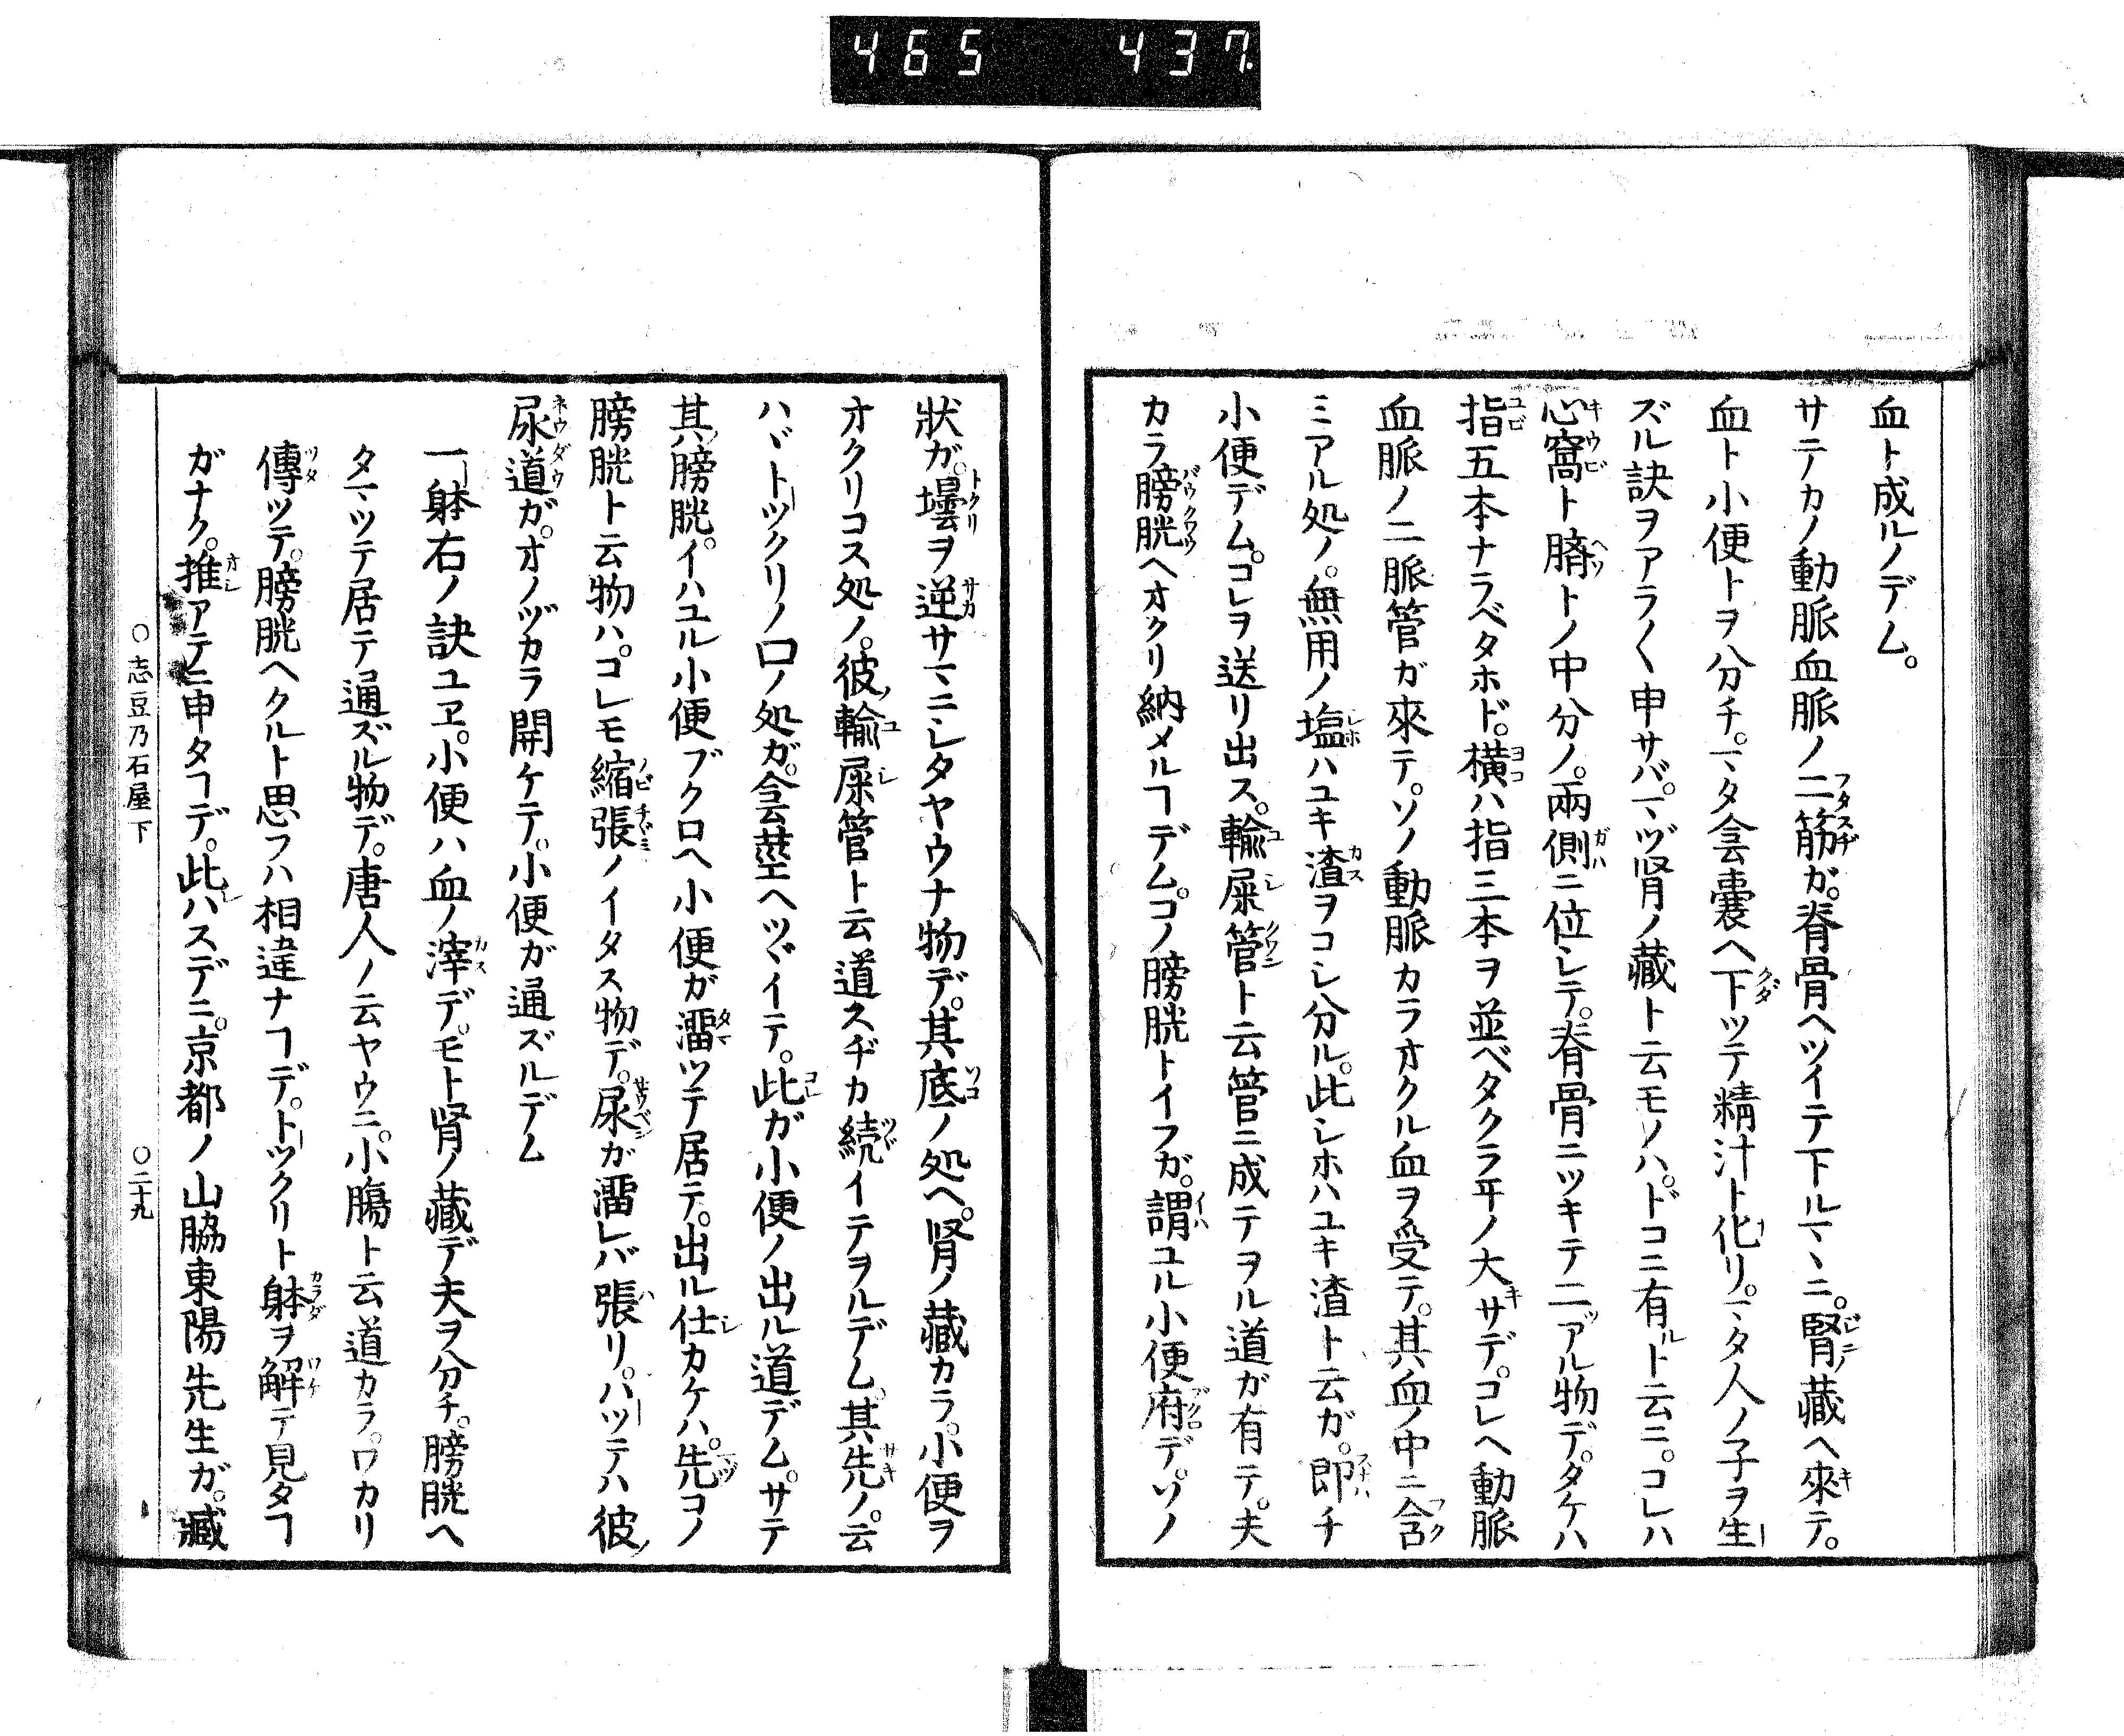 465 437.
血ト成ルノデム。
サテカノ動脈血脈ノ二筋ガ。脊骨ヘツイテ下ルマヽニ。腎ノ藏ヘ來テ。
血ト小便トヲ分チ。マタ会嚢ヘ下ツテ精汁ト化リ。マタ人ノ子ヲ生
ズル訣ヲアラ〱申サバ。マヅ腎ノ藏ト云モノハ。ドコニ有ルト云ニ。コレハ
心窩ト臍トノ中分ノ。兩側ニ位シテ。脊骨ニツキテ二ツアル物デ。タケハ
指五本ナラベタホド。横ハ指三本ヲ並ベタクラヰノ大サデ。コレヘ動脈
血脈ノ二脈管ガ來テ。ソノ動脈カラオクル血ヲ受テ。其血ノ中ニ含
ミアル処ノ。無用ノ塩ハユキ渣ヲコシ分ル。此シホハユキ渣ト云ガ。即チ
小便デム。コレヲ送リ出ス。輸屎管ト云管ニ成テヲル道ガ有テ。夫
カラ膀胱ヘオクリ納メルヿデム。コノ膀胱トイフガ。謂ユル小便府デ。ソノ
狀ガ。壜ヲ逆サマニシタヤウナ物デ。其底ノ処ヘ。腎ノ藏カラ。小便ヲ
オクリコス処ノ。彼ノ輸屎管ト云道スヂカ続イテヲルデム。其先ノ。云
ハヾトツクリノ口ノ処ガ。会莖ヘツヾイテ。此ガ小便ノ出ル道デム。サテ
其ノ膀胱。イハユル小便ブクロヘ小便ガ溜ツテ居テ。出ル仕カケハ。先コノ
膀胱ト云物ハ。コレモ縮張ノイタス物デ。尿ガ溜レバ張リ。ハツテハ彼ノ
尿道ガ。オノヅカラ開ケテ。小便ガ通ズルデム
一躰右ノ訣ユヱ。小便ハ血ノ滓デ。モト腎ノ藏デ夫ヲ分チ。膀胱ヘ
タマツテ居テ通ズル物デ。唐人ノ云ヤウニ。小腸ト云道カラ。ワカリ
傳ツテ。膀胱ヘクルト思フハ相違ナヿデ。トツクリト躰ヲ解テ見タヿ
ガナク。推アテニ申タヿデ。此ハスデニ。京都ノ山脇東陽先生ガ。臓
○志豆乃石屋下 ○二十九